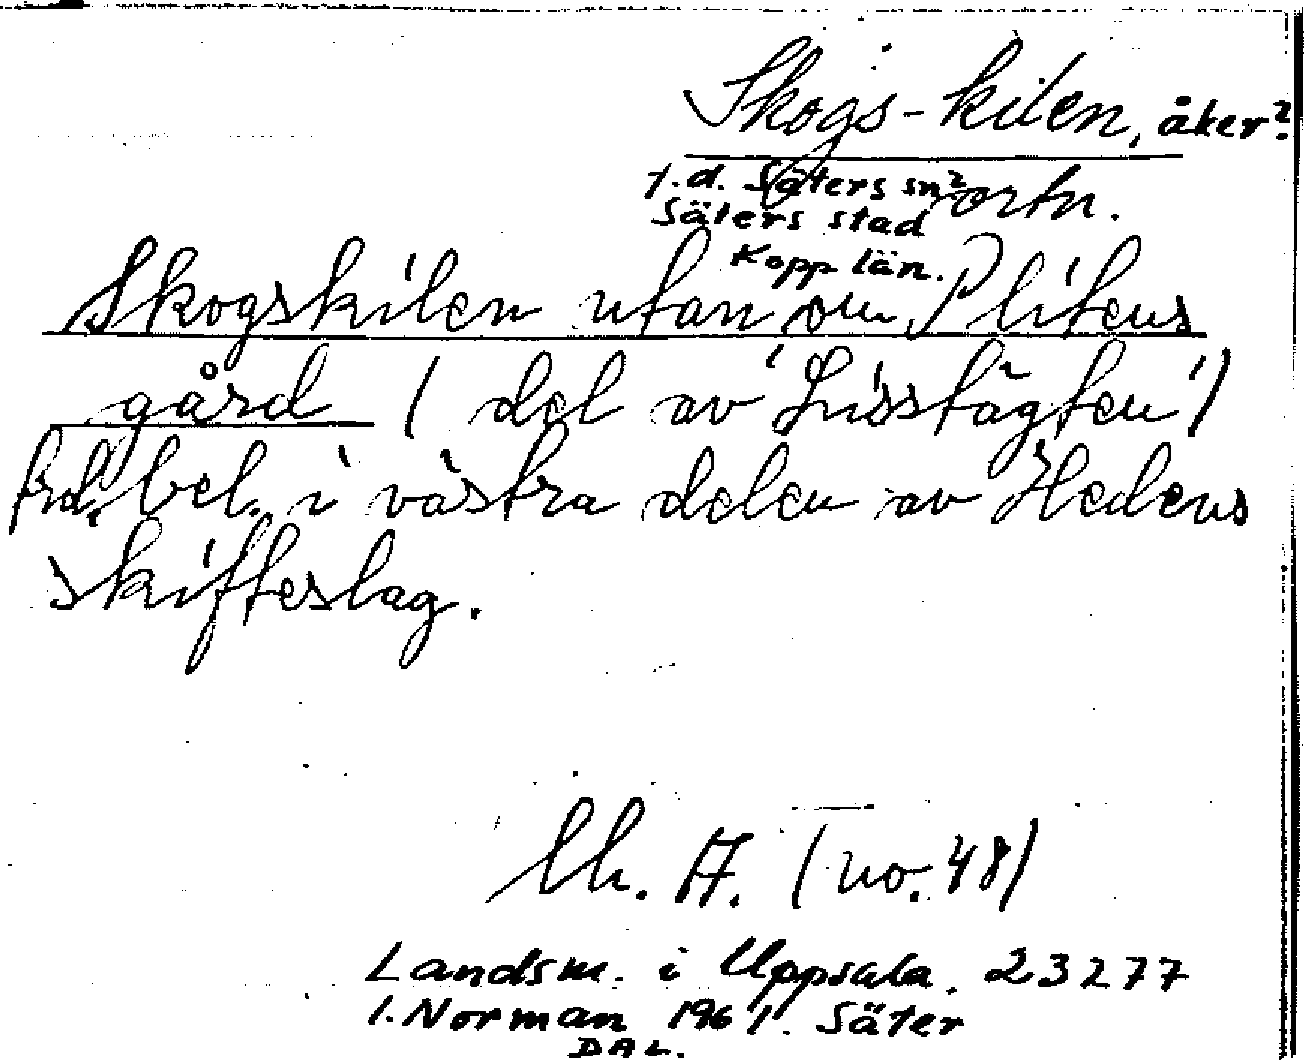 Skogs-kilen, åker?
f.d. Säters sn? ortn.
Säters stad
Kopp län.
Skogskilen utan om Plitens
gård (del av Lisstägten)
frd. bel. i västra delen av Hedens
skifteslag.
Uh. A. (no. 48)
Landsm. i Uppsala. 23277
I. Norman 1961. Säter
DAL.